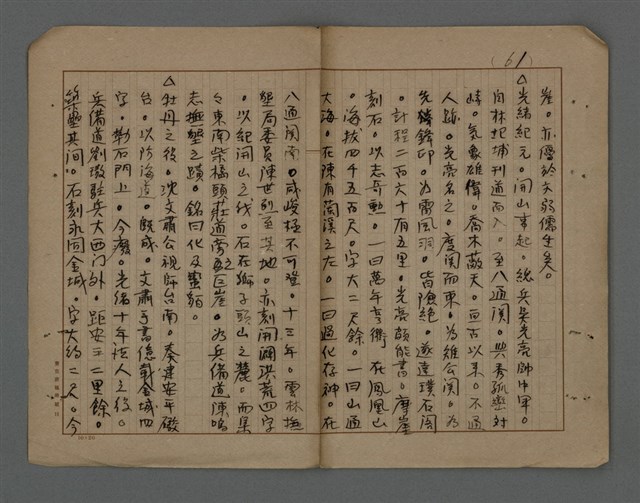 (61)
崖。亦優於文弱儒生矣。
△光緒紀元。開山事起。總兵吳光亮帥中軍。
自林圯埔刊道而入。至八通關。與秀孤巒對
峙。氣象雄偉。喬木蔽天。亘古以來。不通
人跡。光亮名之。度關而東。為雍公關。為
先鋒鋒印。為雷風洞。皆險絕。遂達璞石閣
。計程二百六十有五里。光亮頗能書。摩崖
刻石。以志奇勳。一曰萬年亨衢 在鳳凰山
。海拔四千五百尺。字大二尺餘。一曰山通
大海。在陳有蘭溪之左。一曰過化存神。在
八通關南。咸峻極不可登。十三年。雲林撫
墾局委員陳世烈至其地。亦刻開闢洪荒四字
。以紀開山之伐。石在獅子頭山之麓。而集
々東南柴橋頭莊道旁之巨崖。為兵備道陳鳴
志撫墾之蹟。銘曰化及蠻貊。
△牡丹之役。沈文肅公視師台南。奏建安平礮
台。以防海道。既成。文肅手書億載金城四
字。勒石門上。今廢。光緒十年法人之役。
兵備道劉璈駐兵大西門外。距安平二里餘。
築壘其間。石刻永固金城。字大約二尺。今